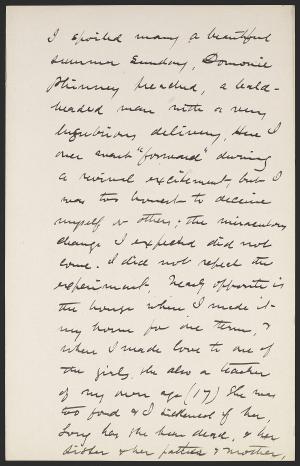 I spoiled many a beautiful
summer Sunday, Dominie
Phinney preached, a bald-
headed man with a very
lugubrious delivery. Here I
once went "forward" during
a revival excitement, but I
was too honest to deceive
myself or others; the miraculous
change I expected did not
come. I did not repeat the
experiment. Nearly opposite is
the house where I made it
my home for one term, &
where I made love to one of
the girls, she also a teacher
of my own age (17) She was
too fond & I sickened of her,
Long has she been dead, & her
sister & her father & mother,